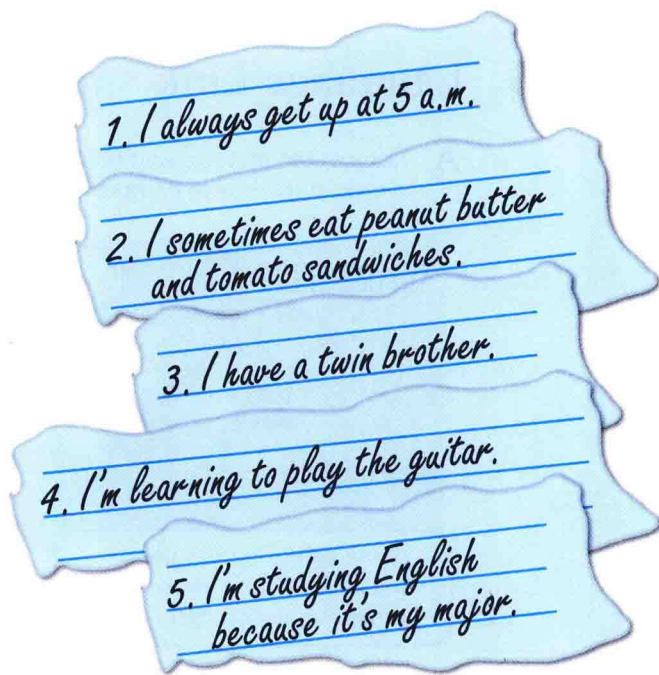 1. I always get up at 5 a.m.
2. I sometimes eat peanut butter
and tomato sandwiches.
3. I have a twin brother.
4. I'm learning to play the guitar.
5. I'm studying English
because it's my major.